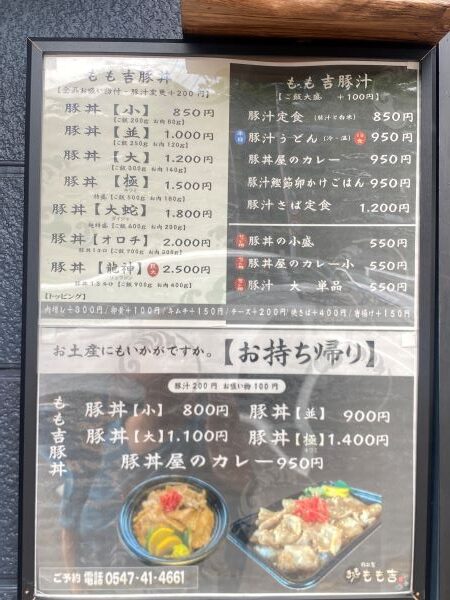 もも吉豚丼
【全品お吸い物付・豚汁変更+200円】
豚丼【小】 850円
【ご飯200g お肉80g】
豚丼【並】 1.000円
【ご飯250g お肉120g】
豚丼【大】 1.200円
【ご飯300g お肉140g】
豚丼【極】 1.500円
豚丼【大蛇】 1.800円
豚丼【オロチ】 2.000円
豚丼【龍神】 2.500円
【トッピング】
肉増し+300円/卵黄+100円/キムチ+150円/チーズ+200円/焼きさば+400円/岩揚げ+150円
もも吉豚汁
【ご飯大盛 +100円】
豚汁定食【豚汁と白米】 850円
豚汁うどん(冷・温) 950円
豚丼屋のカレー 950円
豚汁鰹節卵かけごはん 950円
豚汁さば定食 1.200円
豚丼の小盛 550円
豚丼屋のカレー小 550円
豚汁 大 単品 550円
お土産にもいかがですか。【お持ち帰り】
豚汁200円 お吸い物100円
もも吉豚丼
豚丼【小】 800円 豚丼【並】 900円
豚丼【大】1.100円 豚丼【極】1.400円
豚丼屋のカレー950円
ご予約 電話 0547-41-4661
もも吉